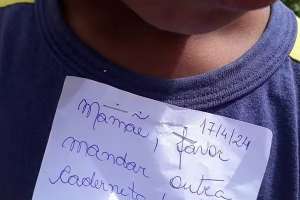 17/4/24
Mamãe, favor
mandar outra
caderneta